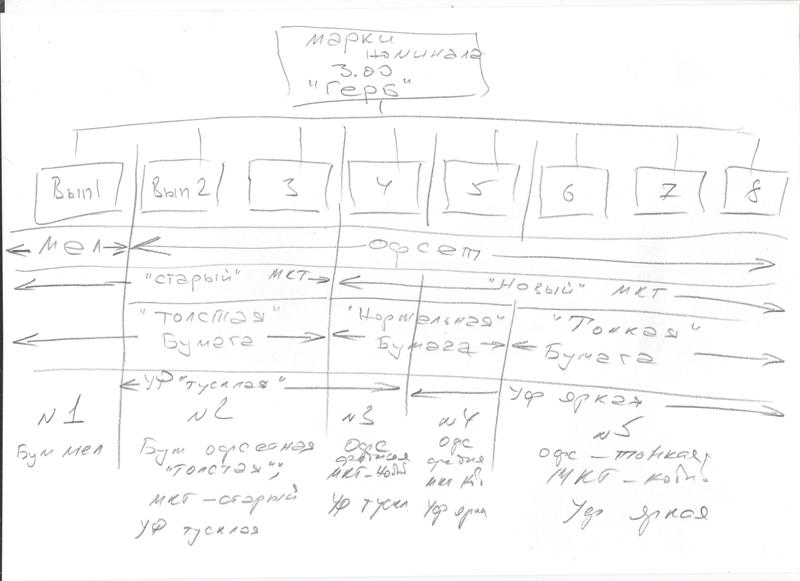 марки
номинала
3.00
"Герб"
Вып1 Вып2 3 4 5 6 7 8
мел офсет
"старый" МКТ "Новый" МКТ
"Толстая" "Нормальная" "Тонкая"
Бумага Бумага Бумага
УФ "тусклая" УФ яркая
№1 №2 №3 №4 №5
Бум мел Бум офсетная Офс офс офс – тонкая,
"толстая",
МКТ – старый УФ тускл УФ ярка УФ яркая
УФ тусклая